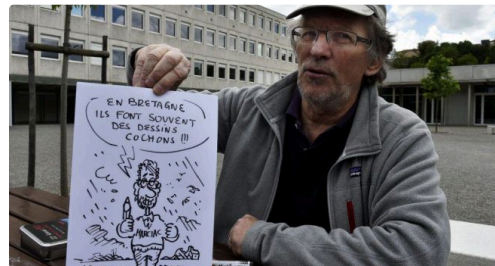 EN BRETAGNE
ILS FONT SOUVENT
DES DESSINS
COCHONS !!!
MARCIAC